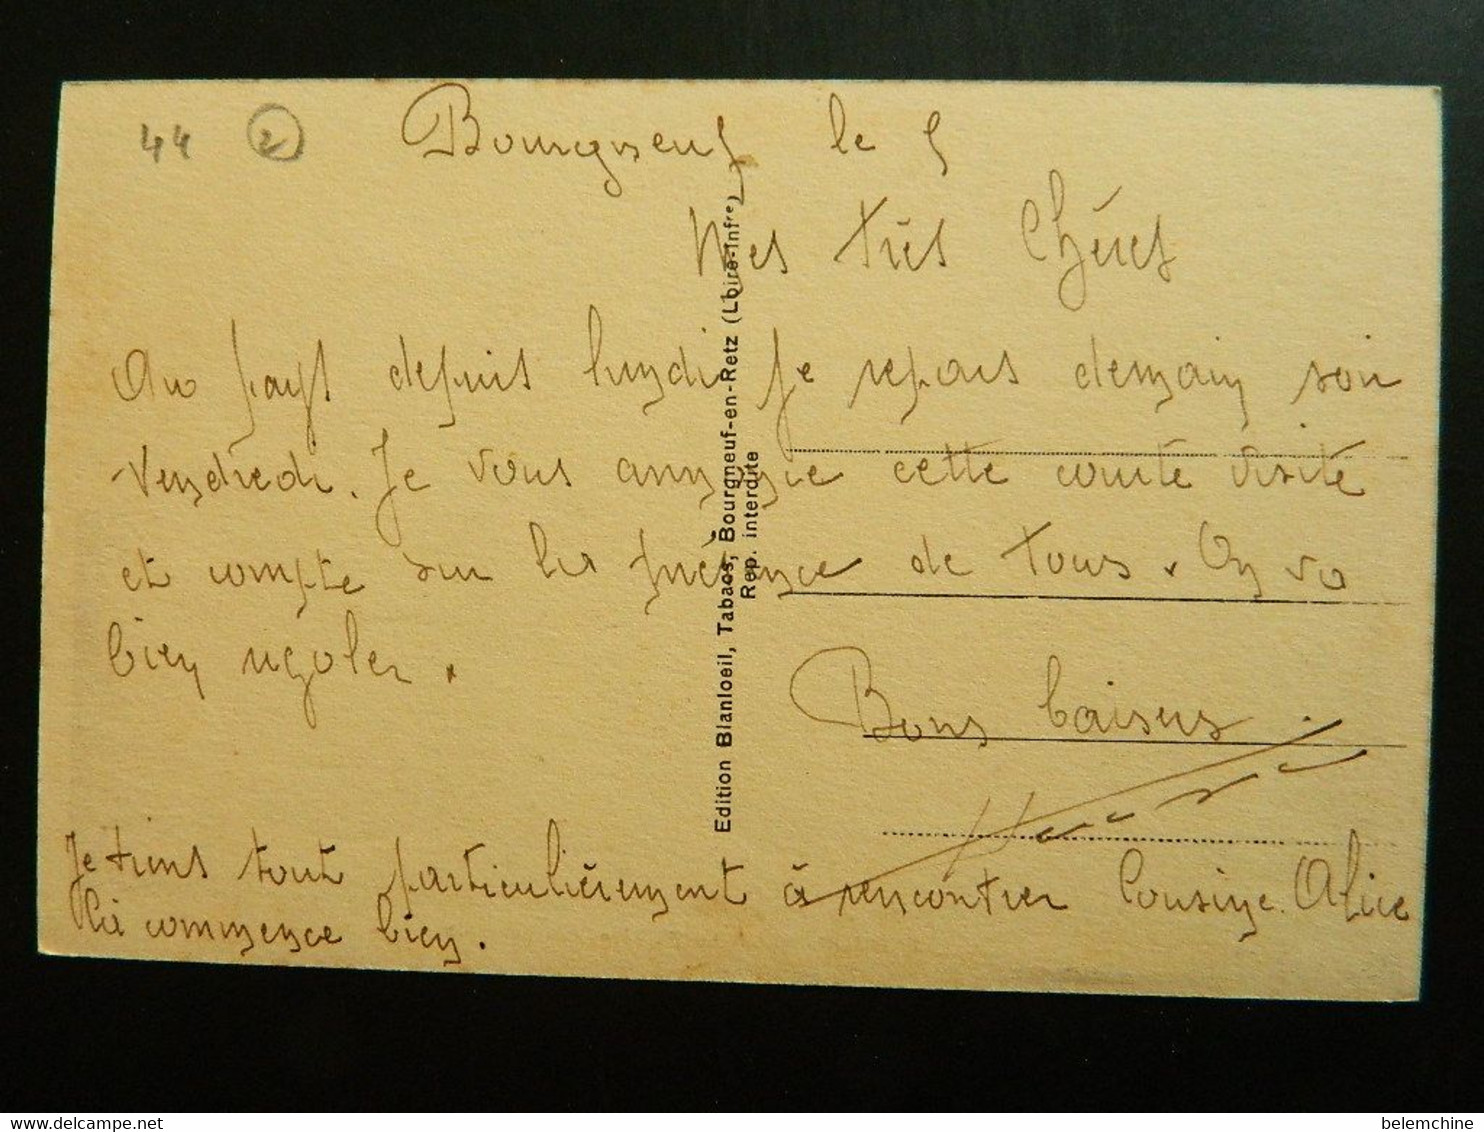 44 2 Bourgneuf le 5
Mes très Chers
Au pays depuis lundi je repars demain soir
Vendredi. Je vous annonce cette courte visite
et compte sur la présence de tous. On va
bien rigoler.
Bons baisers
Je tiens tout particulièrement à rencontrer Cousine Alice
commence bien.
Edition Blanloeil, Tabacs, Bourgneuf-en-Retz (Loire-Infre)
Rep. interdite
www.delcampe.net
belemchine